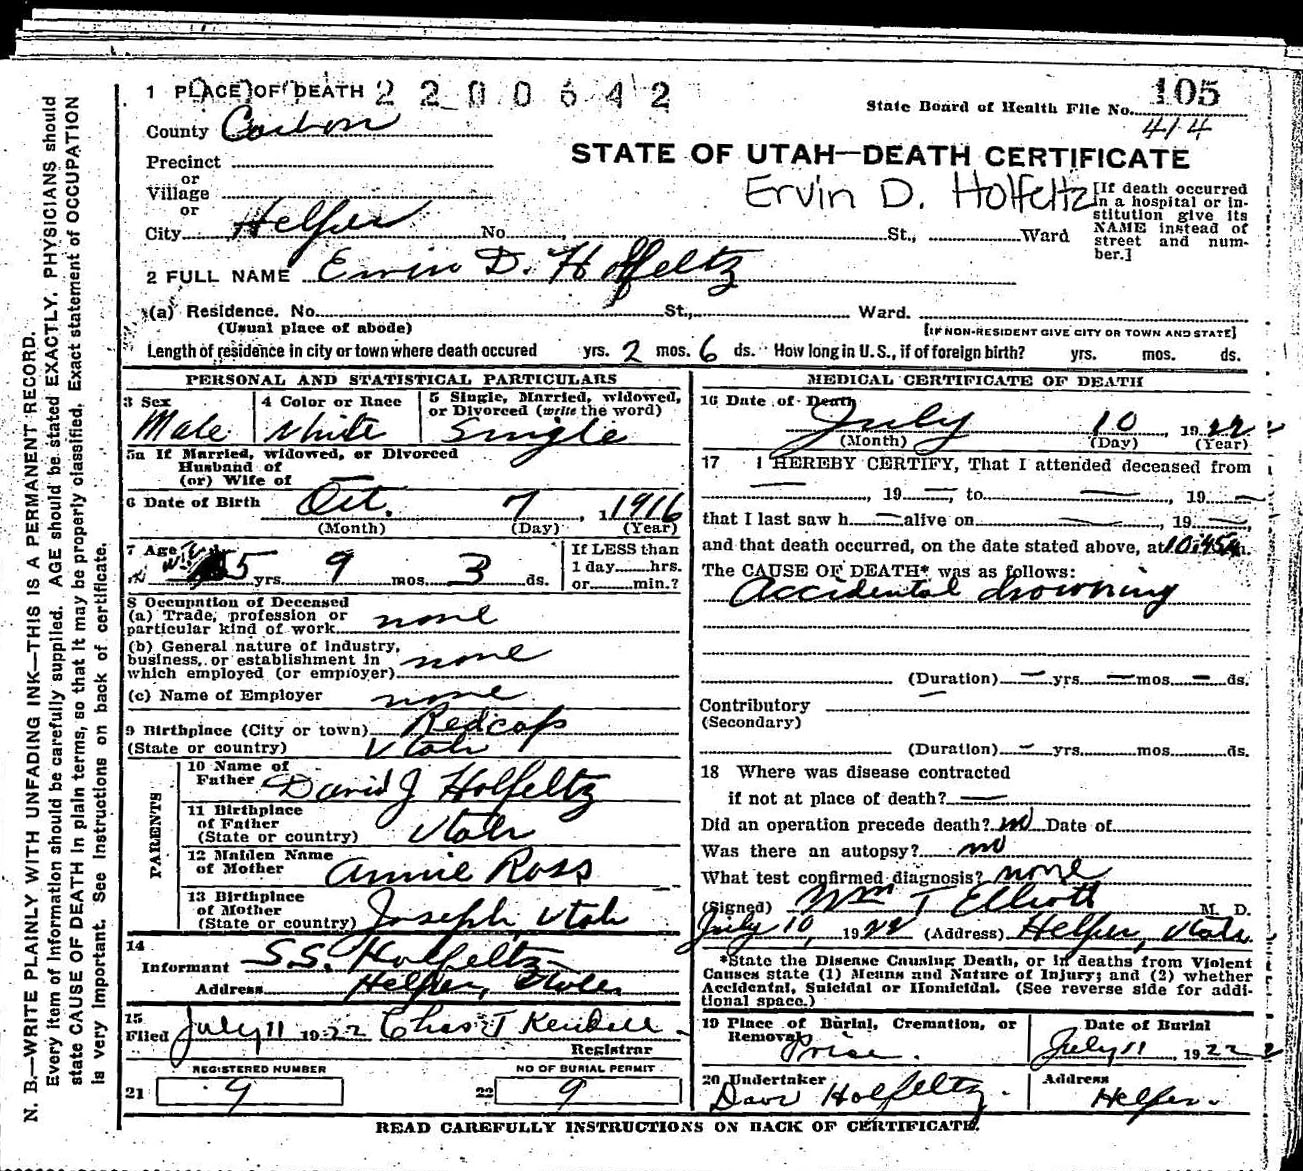 1 PLACE OF DEATH 2200642
State Board of Health File No. 105
414
County Carbon
STATE OF UTAH—DEATH CERTIFICATE
Precinct
or
Village
or
Ervin D. Holfeltz
[If death occurred in a hospital or institution give its NAME instead of street and number.]
City Helper No. St., Ward
2 FULL NAME Ervin D. Holfeltz
(a) Residence. No. St., Ward.
(Usual place of abode)
[IF NON-RESIDENT GIVE CITY OR TOWN AND STATE]
Length of residence in city or town where death occured yrs. 2 mos. 6 ds. How long in U.S., if of foreign birth? yrs. mos. ds.
PERSONAL AND STATISTICAL PARTICULARS
3 Sex Male
4 Color or Race White
5 Single, Married, widowed, or Divorced (write the word) Single
5a If Married, widowed, or Divorced
Husband of
(or) Wife of —
6 Date of Birth Oct. 7, 1916
(Month) (Day) (Year)
7 Age 5 yrs. 9 mos. 3 ds.
If LESS than
1 day hrs.
or min.?
8 Occupation of Deceased
(a) Trade, profession or
particular kind of work none
(b) General nature of industry,
business, or establishment in
which employed (or employer) none
(c) Name of Employer none
9 Birthplace (City or town) Redcap
(State or country) Utah
PARENTS
10 Name of
Father David J Holfeltz
11 Birthplace
of Father
(State or country) Utah
12 Maiden Name
of Mother Annie Ross
13 Birthplace
of Mother
(State or country) Joseph, Utah
14
Informant S.S. Holfeltz
Address Helper, Utah
15
Filed July 11 1922 Chas T Kendell
Registrar
REGISTERED NUMBER
21 9
NO OF BURIAL PERMIT
22 9
MEDICAL CERTIFICATE OF DEATH
16 Date of Death
July 10, 1922
(Month) (Day) (Year)
17 I HEREBY CERTIFY, That I attended deceased from
—, 19—, to —, 19—
that I last saw h — alive on —, 19—,
and that death occurred, on the date stated above, at 10:45 A m.
The CAUSE OF DEATH* was as follows:
Accidental drowning
(Duration) — yrs. — mos. — ds.
Contributory —
(Secondary)
(Duration) — yrs. mos. ds.
18 Where was disease contracted
if not at place of death? —
Did an operation precede death? no Date of
Was there an autopsy? no
What test confirmed diagnosis? none
(Signed) Wm T Elliott M. D.
July 10, 1922 (Address) Helper, Utah
*State the Disease Causing Death, or in deaths from Violent
Causes state (1) Means and Nature of Injury; and (2) whether
Accidental, Suicidal or Homicidal. (See reverse side for addi-
tional space.)
19 Place of Burial, Cremation, or
Removal Price.
Date of Burial
July 11, 1922
20 Undertaker
Dave Holfeltz.
Address
Helper.
READ CAREFULLY INSTRUCTIONS ON BACK OF CERTIFICATE.
N. B.—WRITE PLAINLY WITH UNFADING INK—THIS IS A PERMANENT RECORD.
Every item of information should be carefully supplied. AGE should be stated EXACTLY. PHYSICIANS should
state CAUSE OF DEATH in plain terms, so that it may be properly classified. Exact statement of OCCUPATION
is very important. See instructions on back of certificate.